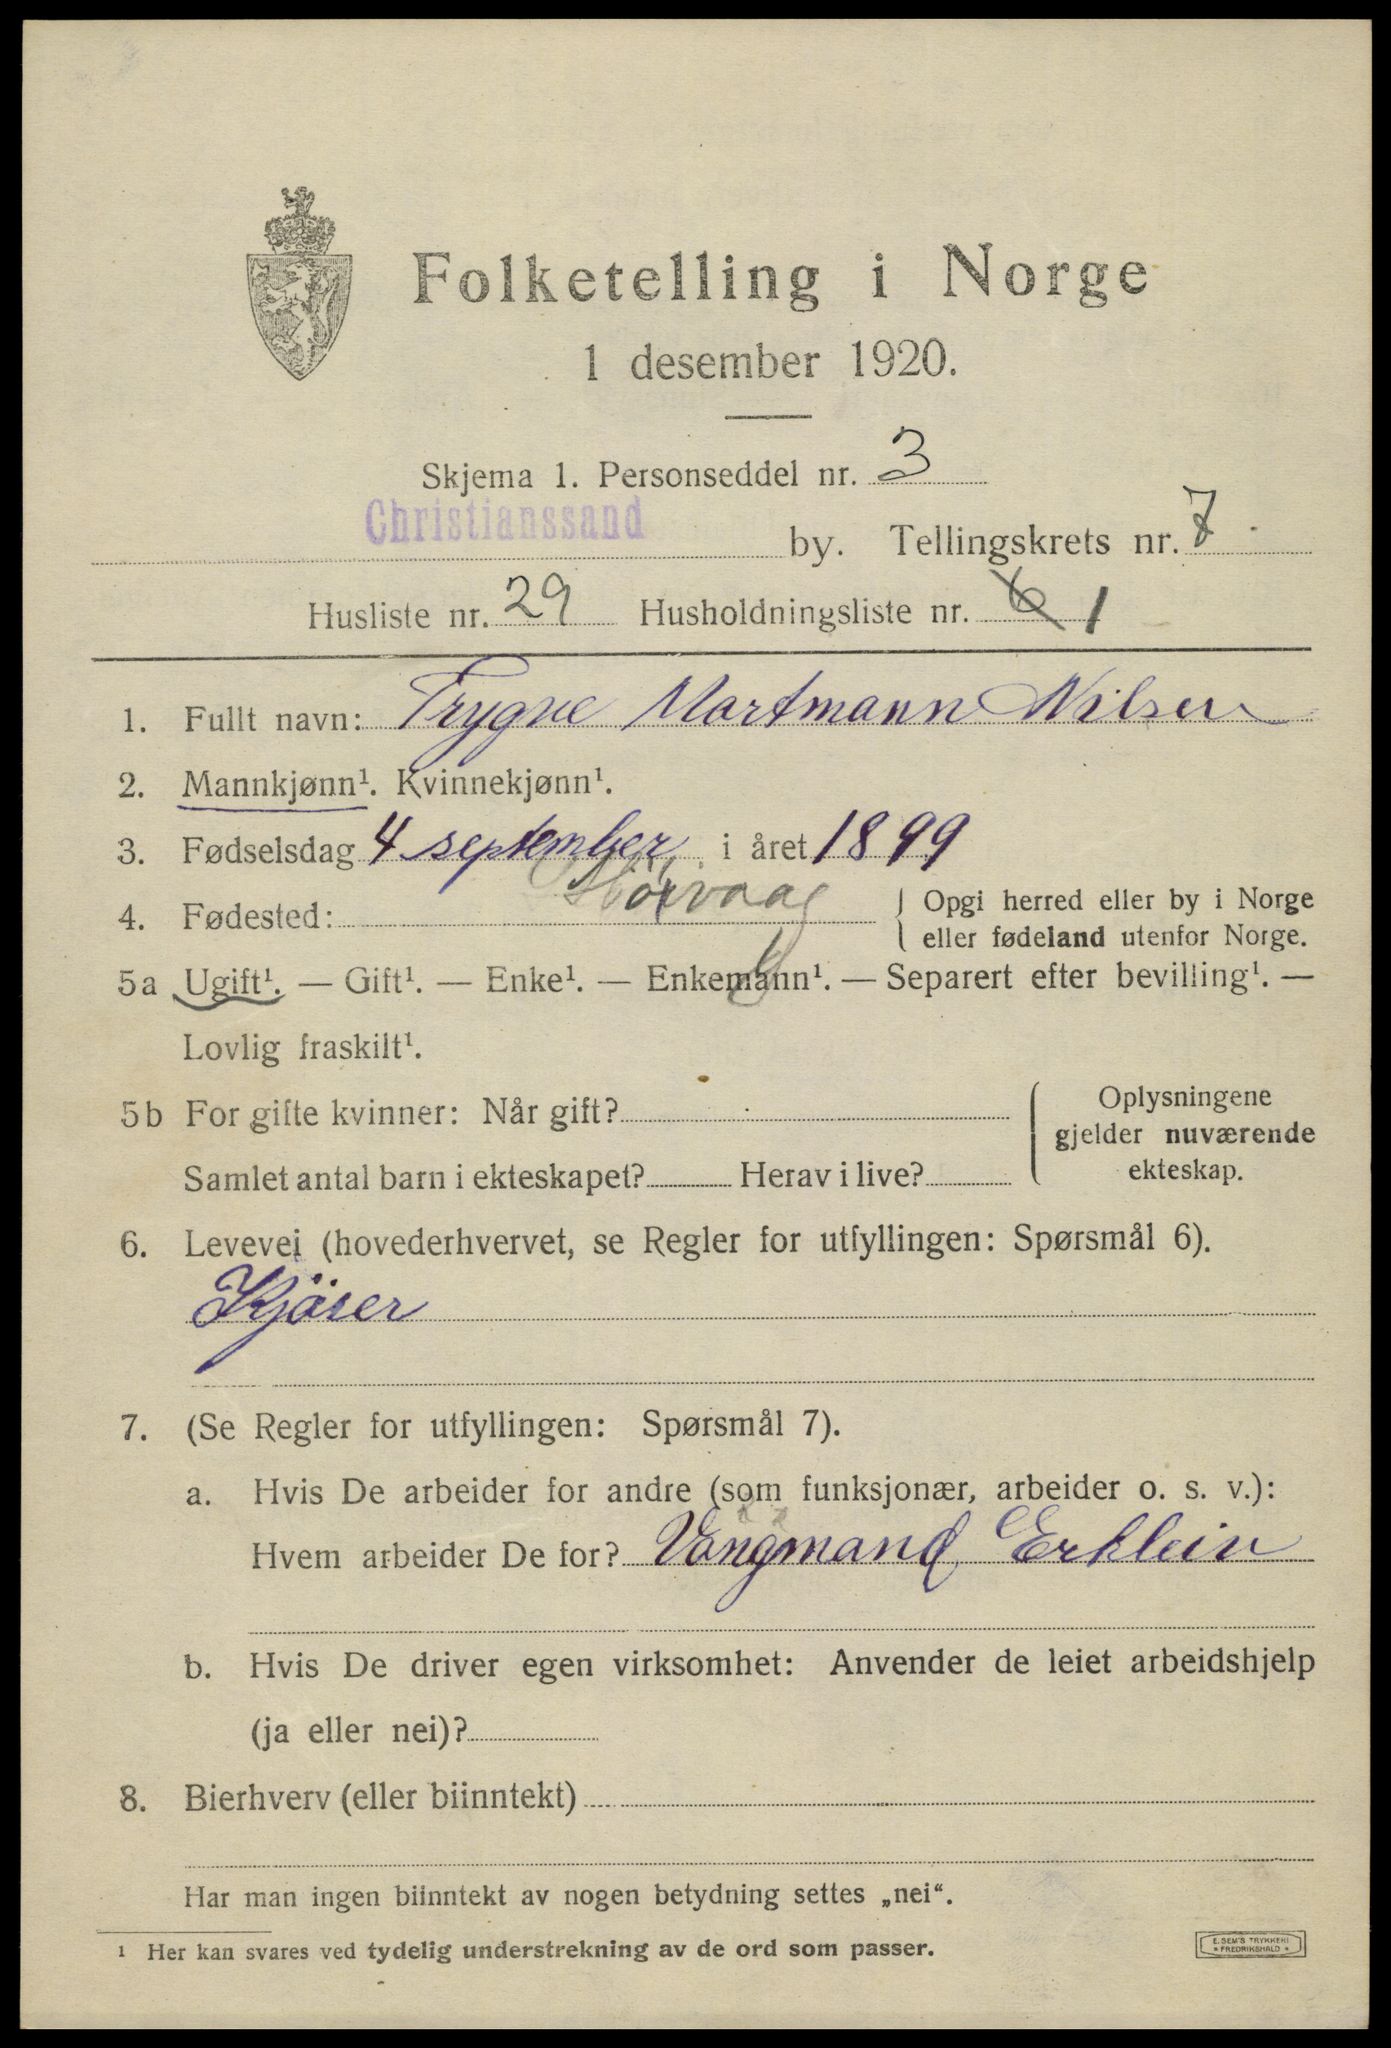 Folketelling i Norge
1 desember 1920.
Skjema 1. Personseddel nr. 3
Christianssand by. Tellingskrets nr. 7
Husliste nr. 29 Husholdningsliste nr. 6 1
1. Fullt navn: Trygve Martmann Nilsen
2. Mannkjønn¹. Kvinnekjønn¹.
3. Fødselsdag 4 september i året 1899
4. Fødested: { Opgi herred eller by i Norge
eller fødeland utenfor Norge.
5a Ugift¹. — Gift¹. — Enke¹. — Enkemann¹. — Separert efter bevilling¹. —
Lovlig fraskilt¹.
5b For gifte kvinner: Når gift? { Oplysningene
gjelder nuværende
Samlet antal barn i ekteskapet? Herav i live? ekteskap.
6. Levevei (hovederhvervet, se Regler for utfyllingen: Spørsmål 6).
Kjörer
7. (Se Regler for utfyllingen: Spørsmål 7).
a. Hvis De arbeider for andre (som funksjonær, arbeider o. s. v.):
Hvem arbeider De for? Vangmand Erklein
b. Hvis De driver egen virksomhet: Anvender de leiet arbeidshjelp
(ja eller nei)?
8. Bierhverv (eller biinntekt)
Har man ingen biinntekt av nogen betydning settes „nei“.
¹ Her kan svares ved tydelig understrekning av de ord som passer.
E. SEM'S TRYKKERI
* FREDRIKSHALD *